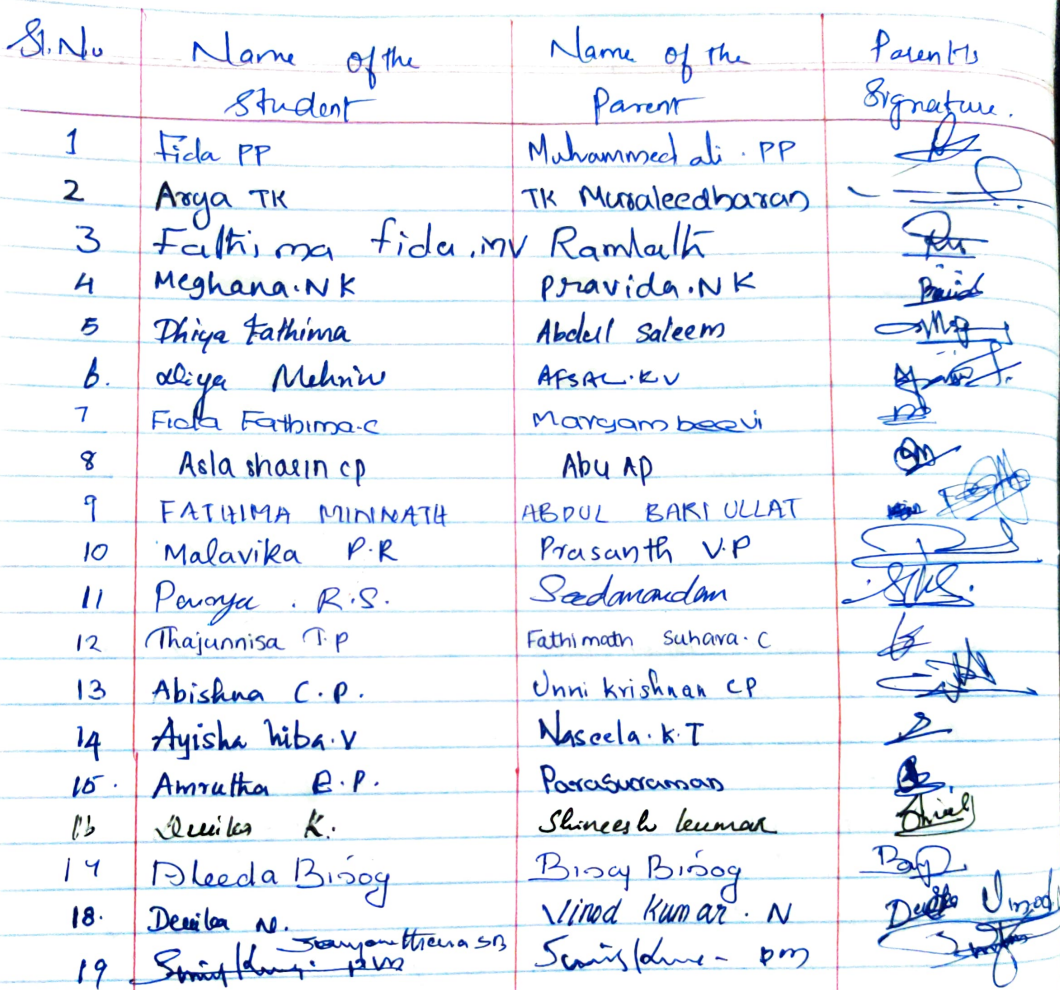 Sl. No Name of the Student Name of the Parent Parent's Signature.
1 Fida PP Muhammed ali . PP
2 Arya TK TK Muraleedharan
3 Fathima fida .mv Ramlath
4 Meghana.NK Pravida.NK
5 Dhiya Fathima Abdul Saleem
6. Aliya Mehrin AFSAL.KV
7 Fida Fathima.C Maryam beevi
8 Asla sharin CP Abu AP
9 FATHIMA MININATH ABDUL BARI ULLAT
10 Malavika P.R Prasanth V.P
11 R.S. Sadanandan
12 Thajunnisa T.P Fathimath Suhara.C
13 Abishna C.P. Unni krishnan CP
14 Ayisha hiba.V Naseela.K.T
15. Amrutha E.P. Parasuraman
16 K. Shineesh kumar
17
18. Devika N. Vinod Kumar . N
19